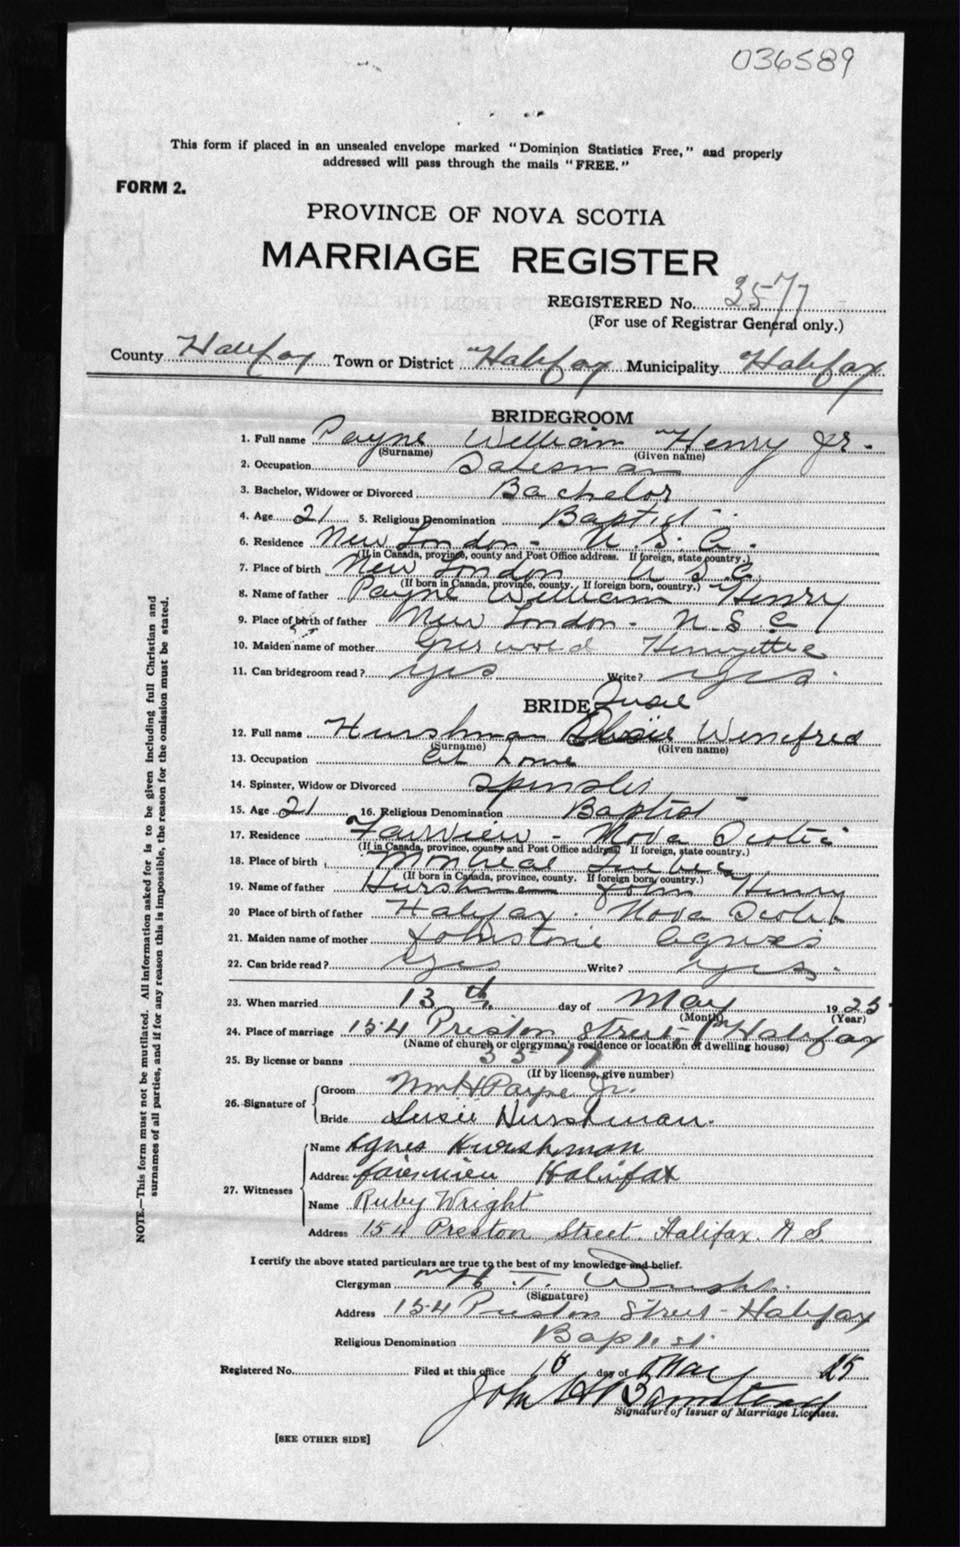 036589
This form if placed in an unsealed envelope marked "Dominion Statistics Free," and properly
addressed will pass through the mails "FREE."
FORM 2.
PROVINCE OF NOVA SCOTIA
MARRIAGE REGISTER
REGISTERED No. 3577
(For use of Registrar General only.)
County Halifax Town or District Halifax Municipality Halifax
BRIDEGROOM
1. Full name Payne William Henry Jr.
(Surname) (Given name)
2. Occupation Salesman
3. Bachelor, Widower or Divorced Bachelor
4. Age 21 5. Religious Denomination Baptist
6. Residence New London - U. S. A.
(If in Canada, province, county and Post Office address. If foreign, state country.)
7. Place of birth New London U S A
(If born in Canada, province, county. If foreign born, country.)
8. Name of father Payne William Henry
9. Place of birth of father New London - U S A
10. Maiden name of mother
11. Can bridegroom read? Yes Write? Yes.
BRIDE Susie
12. Full name Hurshman Winefred
(Surname) (Given name)
13. Occupation At home
14. Spinster, Widow or Divorced Spinster
15. Age 21 16. Religious Denomination Baptist
17. Residence Fairview - Nova Scotia
(If in Canada, province, county and Post Office address. If foreign, state country.)
18. Place of birth Montreal Quebec
(If born in Canada, province, county. If foreign born, country.)
19. Name of father Hurshman John Henry
20 Place of birth of father Halifax. Nova Scotia
21. Maiden name of mother Johnstone Agnes
22. Can bride read? Yes Write? Yes.
23. When married 13th day of May 1925
(Month) (Year)
24. Place of marriage 154 Preston Street, Halifax
(Name of church or clergyman's residence or location of dwelling house)
25. By license or banns 3577
(If by license, give number)
26. Signature of
Groom Wm H Payne Jr.
Bride Susie Hurshman.
27. Witnesses
Name Agnes Hurshman
Address fairview Halifax
Name Ruby Wright
Address 154 Preston Street. Halifax. N S.
I certify the above stated particulars are true to the best of my knowledge and belief.
Clergyman
(Signature)
Address 154 Preston Street - Halifax
Religious Denomination Baptist
Registered No. Filed at this office day of May 25
John
Signature of Issuer of Marriage Licenses.
[SEE OTHER SIDE]
NOTE.—This form must not be mutilated. All information asked for is to be given including full Christian and
surnames of all parties, and if for any reason this is impossible, the reason for the omission must be stated.